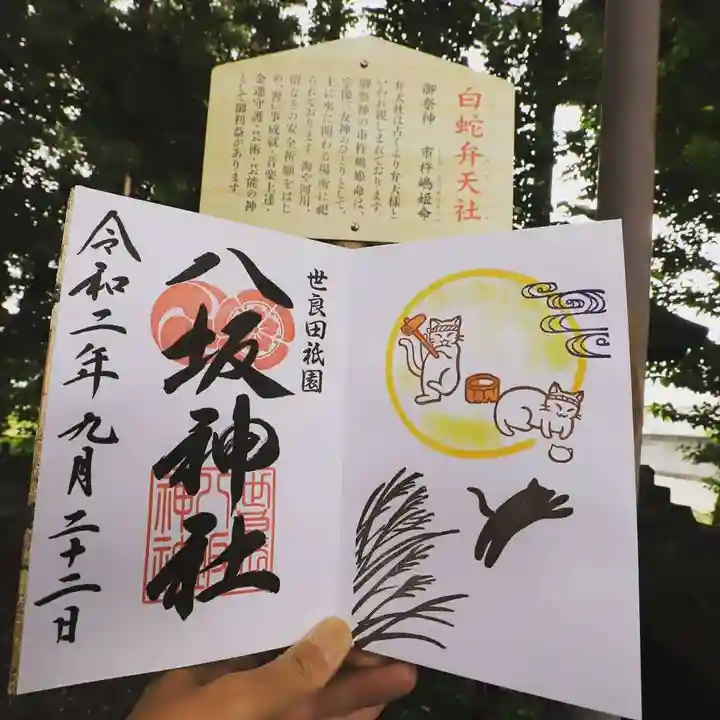 白蛇弁天社
御祭神 市杵嶋姫命
弁天社は古くより弁天様と
いわれ親しまれております。
御祭神の市杵嶋姫命は、
宗像三女神のひとりとして、
主に水に関わる場所に祀
られております。海や河川、
沼などの安全祈願をはじ
め、習い事成就・音楽上達・
金運守護・芸術・芸能の神
として御利益があります
世良田祇園
八坂神社
令和二年九月二十二日